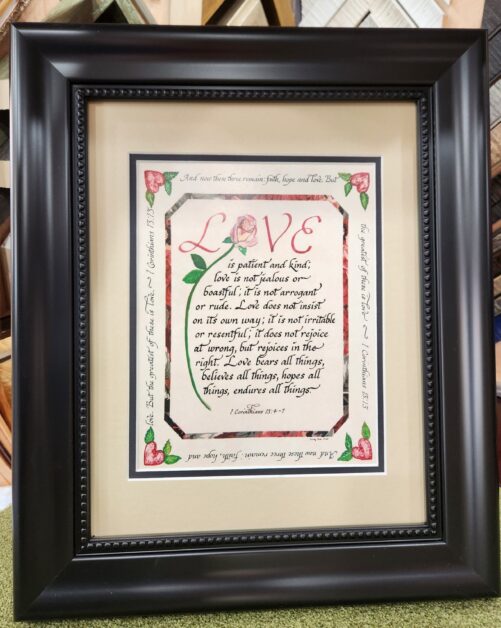 And now these three remain: faith, hope and love. But
the greatest of these is love. ~ 1 Corinthians 13:13
And now these three remain: faith, hope and
love. But the greatest of these is love. ~ 1 Corinthians 13:13
LOVE
is patient and kind;
love is not jealous or
boastful; it is not arrogant
or rude. Love does not insist
on its own way; it is not irritable
or resentful; it does not rejoice
at wrong, but rejoices in the
right. Love bears all things,
believes all things, hopes all
things, endures all things.
1 Corinthians 13:4-7